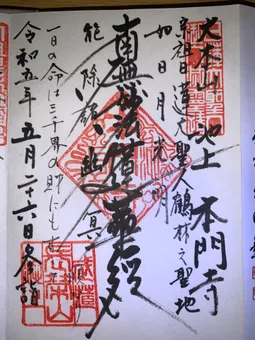 大本山 池上 本門寺
宗祖日蓮大聖人鶴林之聖地
如日月光明
南無妙法蓮華経
能除諸幽冥
一日の命は三千界の財にも
令和五年五月二十六日参詣